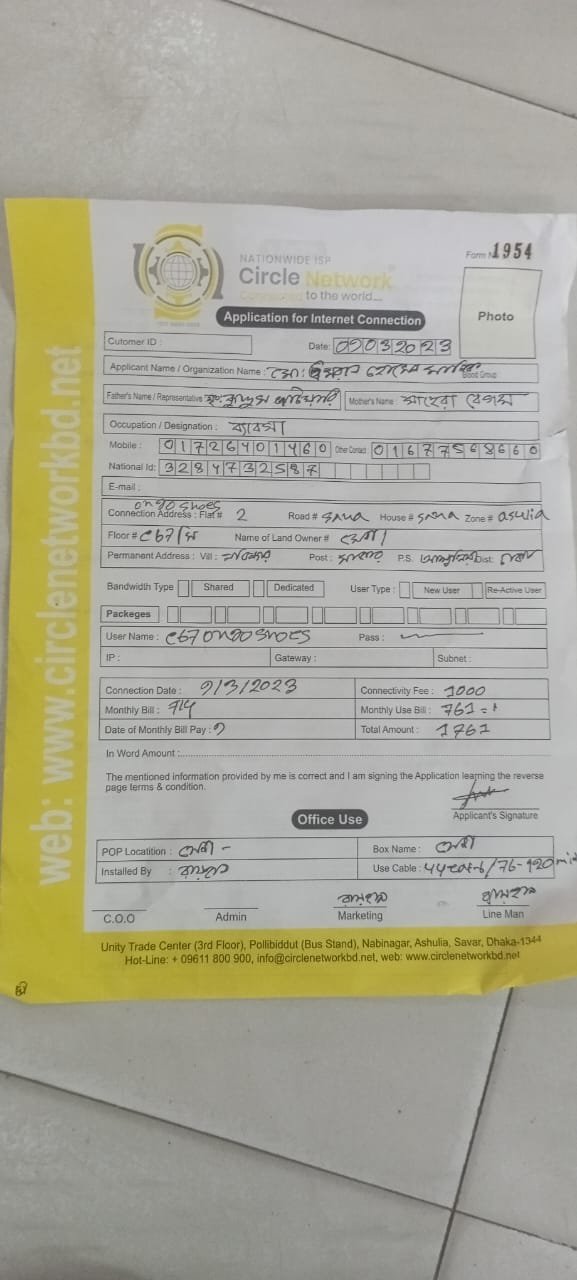 NATIONWIDE ISP
Circle Network
Connected to the world....
Form No 1954
Photo
Application for Internet Connection
Cutomer ID :
Date: 09032023
Applicant Name / Organization Name : মো:
Blood Group
Father's Name / Representative
Mother's Name : সাহেরা বেগম
Occupation / Designation : ব্যাবসা
Mobile : 01726401460 Other Contact 01677568660
National Id: 3284732587
E-mail :
ongo shoes
Connection Address : Flat # 2 Road # House # Zone #
Floor # Name of Land Owner #
Permanent Address : Vill : Post : P.S. Dist:
Bandwidth Type Shared Dedicated User Type : New User Re-Active User
Packeges
User Name : Pass :
IP : Gateway : Subnet :
Connection Date : 9/3/2023 Connectivity Fee : 1000
Monthly Bill : 714 Monthly Use Bill : 761
Date of Monthly Bill Pay : 9 Total Amount : 1761
In Word Amount :
The mentioned information provided by me is correct and I am signing the Application learning the reverse
page terms & condition.
Applicant's Signature
Office Use
POP Locatition : Box Name :
Installed By : Use Cable :
C.O.O Admin Marketing Line Man
Unity Trade Center (3rd Floor), Pollibiddut (Bus Stand), Nabinagar, Ashulia, Savar, Dhaka-1344
Hot-Line: + 09611 800 900, info@circlenetworkbd.net, web: www.circlenetworkbd.net
web: www.circlenetworkbd.net